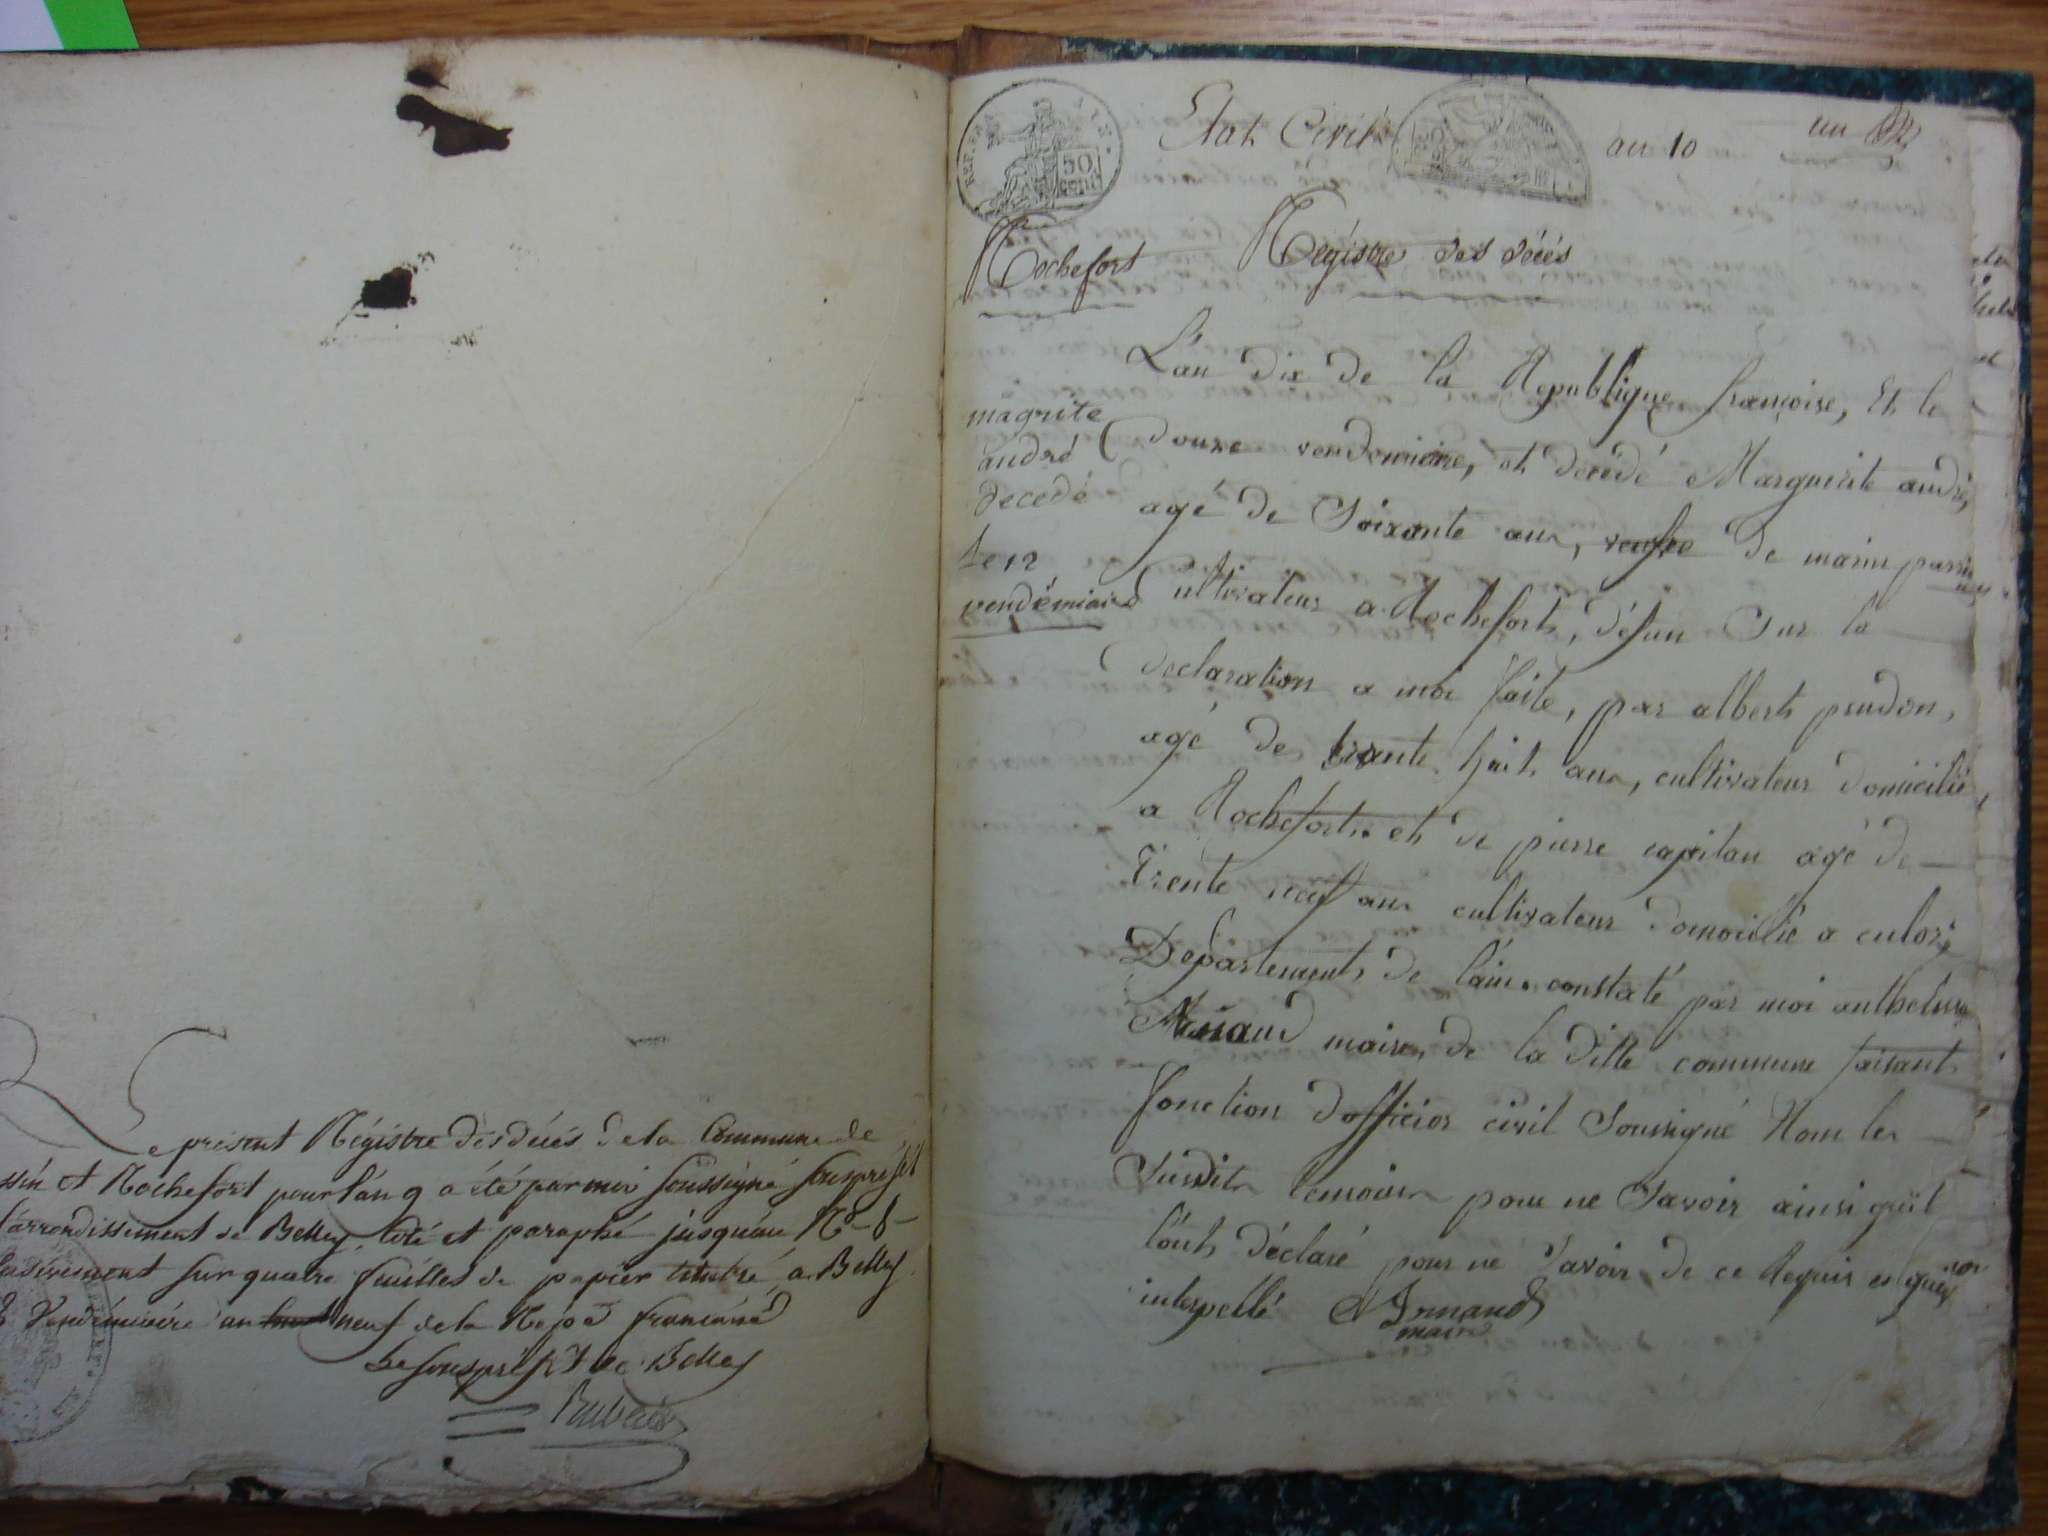 Le présent Régistre des décés de la Commune de
ssin et Rochefort pour l'an 9 a été par moi soussigné souspréfet
l'arrondissement de Belley, coté et paraphé jusqu'au N° 8
inclusivement sur quatre feuilles de papier timbré a Belley
Vendémiaire an huit neuf de la Répub. francaise
Le souspréfet de Belley
REP. FRA
50
cent
Etat Civil
an 10
un
Rochefort
Régistre des décés
magrite
andré
decedé
le 12
vendémiaire
L'an dix de la Republique françoise, Et le
douze vendemiaire, et decédé Marguerite andré,
agé de Soixante ans, veufve de marin
Cultivateur a Rochefort, défun Sur la
declaration a moi faite, par albert prudon,
agé de trante huit ans, cultivateur domicilié,
a Rochefort. et de pierre capitan agé de
Trente neuf ans cultivateur domicilié a culoz,
Département de l'ain. constaté par moi anthelme
Armand maire, de la ditte commune faisant
fonction d'officier civil Soussigné Non les
Susdits temoins pour ne Savoir ainsi qu'il
l'ont déclaré pour ne Savoir, de ce Requis
interpellé Armand
maire